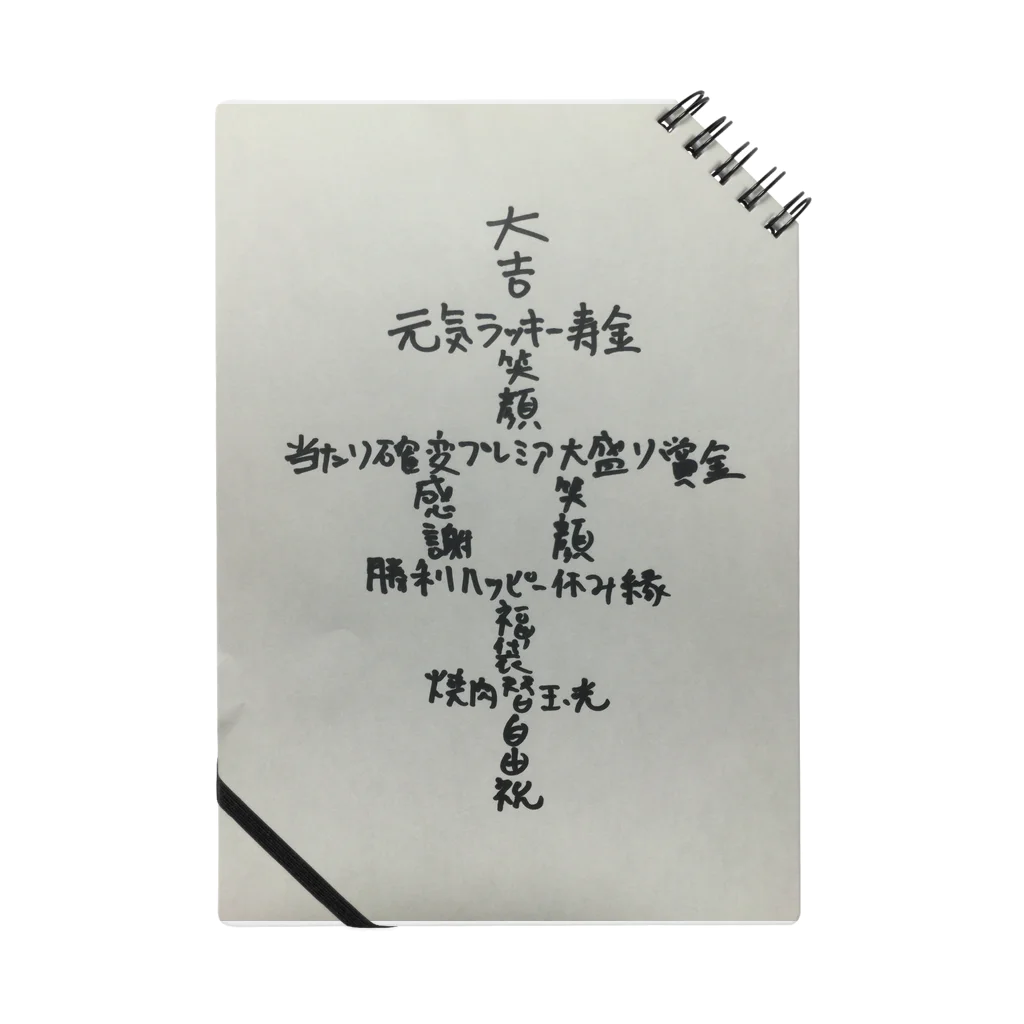 大
吉
元気ラッキー寿金
笑
顔
当たり確変プレミア大盛り賞金
感 笑
謝 顔
勝利ハッピー休み縁
福
袋
焼肉替玉光
自
由
祝